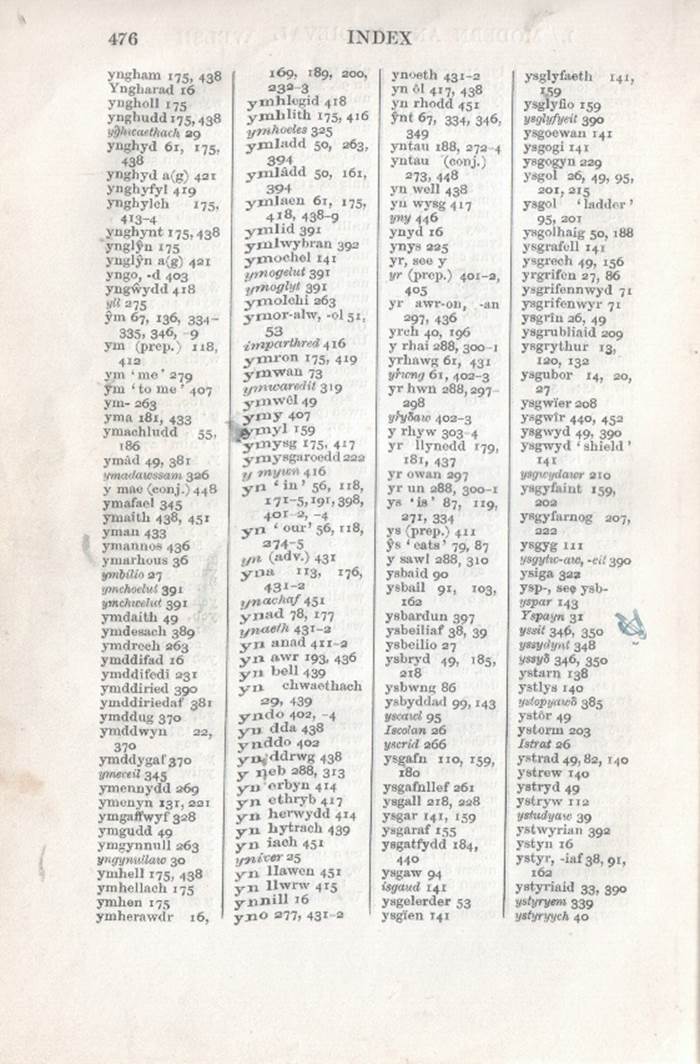 476 INDEX
yngham 175, 438
Yngharad 16
yngholl 175
ynghudd 175, 438
ynghyd 61, 175,
438
ynghyd a(g) 421
ynghyfyl 419
ynghylch 175,
413-4
ynghynt 175, 438
ynglŷn 175
ynglŷn a(g) 421
yngo, -d 403
yngwŷdd 418
yll 275
ŷm 67, 136, 334-
335, 346, -9
ym (prep.) 118,
412
ym ‘me’ 279
ym ‘to me’ 407
ym- 263
yma 181, 433
ymachludd 55,
186
ymâd 49, 381
ymadawssam 326
y mae (conj.) 448
ymafael 345
ymaith 438, 451
yman 433
ymannos 436
ymarhous 36
ymbilio 27
ymchoelut 391
ymchwelut 391
ymdaith 49
ymdesach 389
ymdrech 263
ymddifad 16
ymddifedi 231
ymddiried 390
ymddiriedaf 381
ymddug 370
ymddwyn 22,
370
ymddygaf 370
ymeceil 345
ymennydd 269
ymenyn 131, 221
ymgaffwyf 328
ymgudd 49
ymgynnull 263
yngynullaw 30
ymhell 175, 438
ymhellach 175
ymhen 175
ymherawdr 16,
169, 189, 200,
232-3
ymhlegid 418
ymhlith 175, 416
ymhoeles 325
ymladd 50, 263,
394
ymlâdd 50, 161,
394
ymlaen 61, 175,
418, 438-9
ymlid 391
ymlwybran 392
ymochel 141
ymogelut 391
ymoglyt 391
ymolchi 263
ymor-alw, -ol 51,
53
imparthred 416
ymron 175, 419
ymwan 73
ymwaredit 319
ymwêl 49
ymy 407
ymyl 159
ymysg 175, 417
ymysgaroedd 222
y mywn 416
yn ‘in’ 56, 118,
171-5, 191, 398,
401-2, -4
yn ‘our’ 56, 118,
274-5
yn (adv.) 431
yna 113, 176,
431-2
ynachaf 451
ynad 78, 177
ynaeth 431-2
yn anad 411-2
yn awr 193, 436
yn bell 439
yn chwaethach
29, 439
yndo 402, -4
yn dda 438
ynddo 402
yn ddrwg 438
y neb 288, 313
yn erbyn 414
yn ethryb 417
yn herwydd 414
yn hytrach 439
yn iach 451
yniver 25
yn llawen 451
yn llwrw 415
ynnill 16
yno 277, 431-2
ynoeth 431-2
yn ôl 417, 438
yn rhodd 451
ŷnt 67, 334, 346,
349
yntau 188, 272-4
yntau (conj.)
273, 448
yn well 438
yn wysg 417
yny 446
ynyd 16
ynys 225
yr, see y
yr (prep.) 401-2,
405
yr awr-on, -an
297, 436
yrch 40, 196
y rhai 288, 300-1
yrhawg 61, 431
yrwng 61, 402-3
yr hwn 288, 297-
298
yryδaw 402-3
y rhyw 303-4
yr llynedd 179,
181, 437
yr owan 297
yr un 288, 300-1
ys ‘is’ 87, 119,
271, 334
ys (prep.) 411
ŷs ‘eats’ 79, 87
y sawl 288, 310
ysbaid 90
ysbail 91, 103,
162
ysbardun 397
ysbeiliaf 38, 39
ysbeilio 27
ysbryd 49, 185,
218
ysbwng 86
ysbyddad 99, 143
yscawl 95
Iscolan 26
yscrid 266
ysgafn 110, 159,
180
ysgafnllef 261
ysgall 218, 228
ysgar 141, 159
ysgaraf 155
ysgatfydd 184,
440
ysgaw 94
isgaud 141
ysgelerder 53
ysgïen 141
ysglyfaeth 141,
159
ysglyfio 159
ysglyfyeit 390
ysgoewan 141
ysgogi 141
ysgogyn 229
ysgol 26, 49, 95,
201, 215
ysgol ‘ladder’
95, 201
ysgolhaig 50, 188
ysgrafell 141
ysgrech 49, 156
yrgrifen 27, 86
ysgrifennwyd 71
ysgrifenwyr 71
ysgrîn 26, 49
ysgrubliaid 209
ysgrythur 13,
120, 132
ysgubor 14, 20,
27
ysgwïer 208
ysgwîr 440, 452
ysgwyd 49, 390
ysgwyd ‘shield’
141
ysgwydawr 210
ysgyfaint 159,
202
ysgyfarnog 207,
222
ysgyg 111
ysgytw-aw, -eit 390
ysiga 322
ysp-, see ysb-
yspar 143
Yspayn 31
yssit 346, 350
yssydynt 348
yssyδ 346, 350
ystarn 138
ystlys 140
ystopyawδ 385
ystôr 49
ystorm 203
Istrat 26
ystrad 49, 82, 140
ystrew 140
ystryd 49
ystryw 112
ystudyaw 39
ystwyrian 392
ystyn 16
ystyr, -iaf 38, 91,
162
ystyriaid 33, 390
ystyryem 339
ystyryych 40